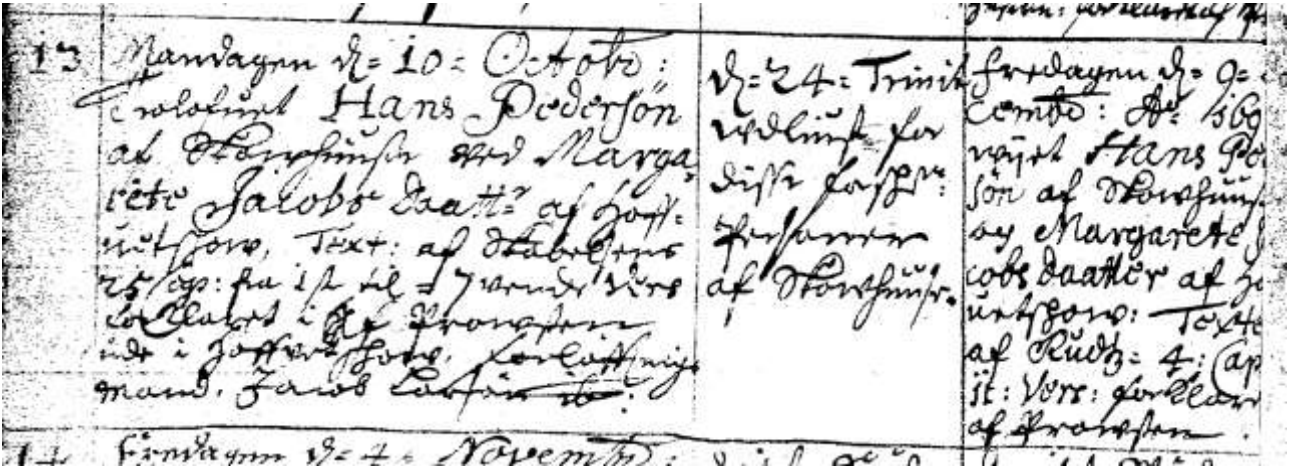 13
Mandagen d= 10= Octobr:
Trolofuet Hans Pedersøn
af Skowhuuse med Marga
rete Jacobs daattr af Hoff=
uetskow. Text: af Skabelsens
25 Cap: fra 1st til = 7vende Vers
forklaret af Prowsten
ude i Hoffvetskow. forløffnings
mand. Jacob
d= 24= Trinit
liust for
disse
Personer
af Skowhuuse.
Fredagen d= 9=
cembr: Ao 169
wiet Hans Pe
søn af Skowhuus
og Margarete J
cobs daatter af Ho
uetskow: Texte
af Rudtz= 4: Cap
11: Vers: forklar
af Prowsten.
14
Fredagen d= 4= Novembr: